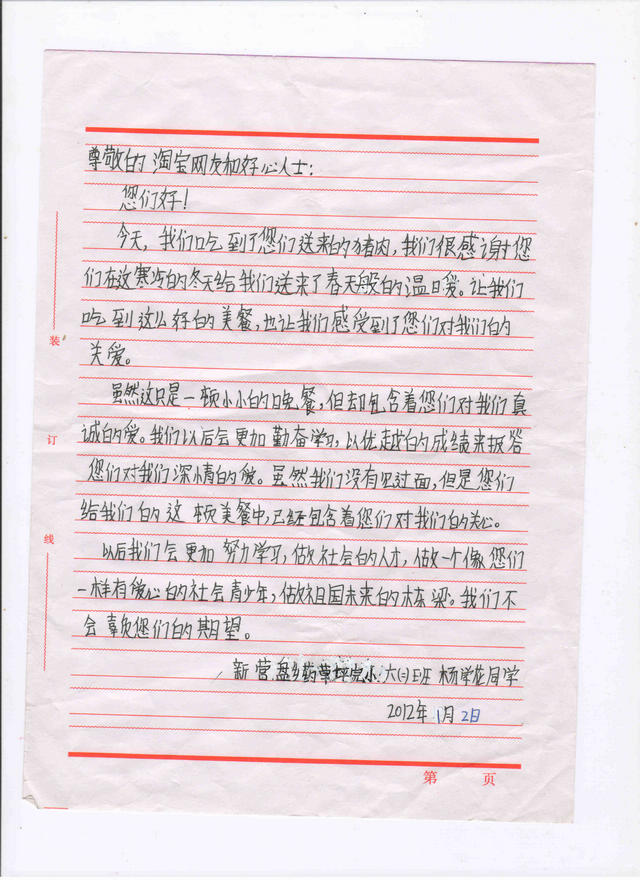 尊敬的淘宝网友和好心人士：
您们好！
今天，我们吃到了您们送来的猪肉，我们很感谢您
们在这寒冷的冬天给我们送来了春天般的温暖。让我们
吃到这么好的美餐，也让我们感受到了您们对我们的
关爱。
虽然这只是一顿小小的晚餐，但却包含着您们对我们真
诚的爱。我们以后会更加勤奋学习，以优越的成绩来报答
您们对我们深情的爱。虽然我们没有见过面，但是您们
给我们的这顿美餐中，已经包含着您们对我们的关心。
以后我们会更加努力学习，做社会的人才，做一个像您们
一样有爱心的社会青少年，做祖国未来的栋梁。我们不
会辜负您们的期望。
新营盘乡药草坪完小：六(二)班 杨学花同学
2012年1月2日
装
订
线
第 页